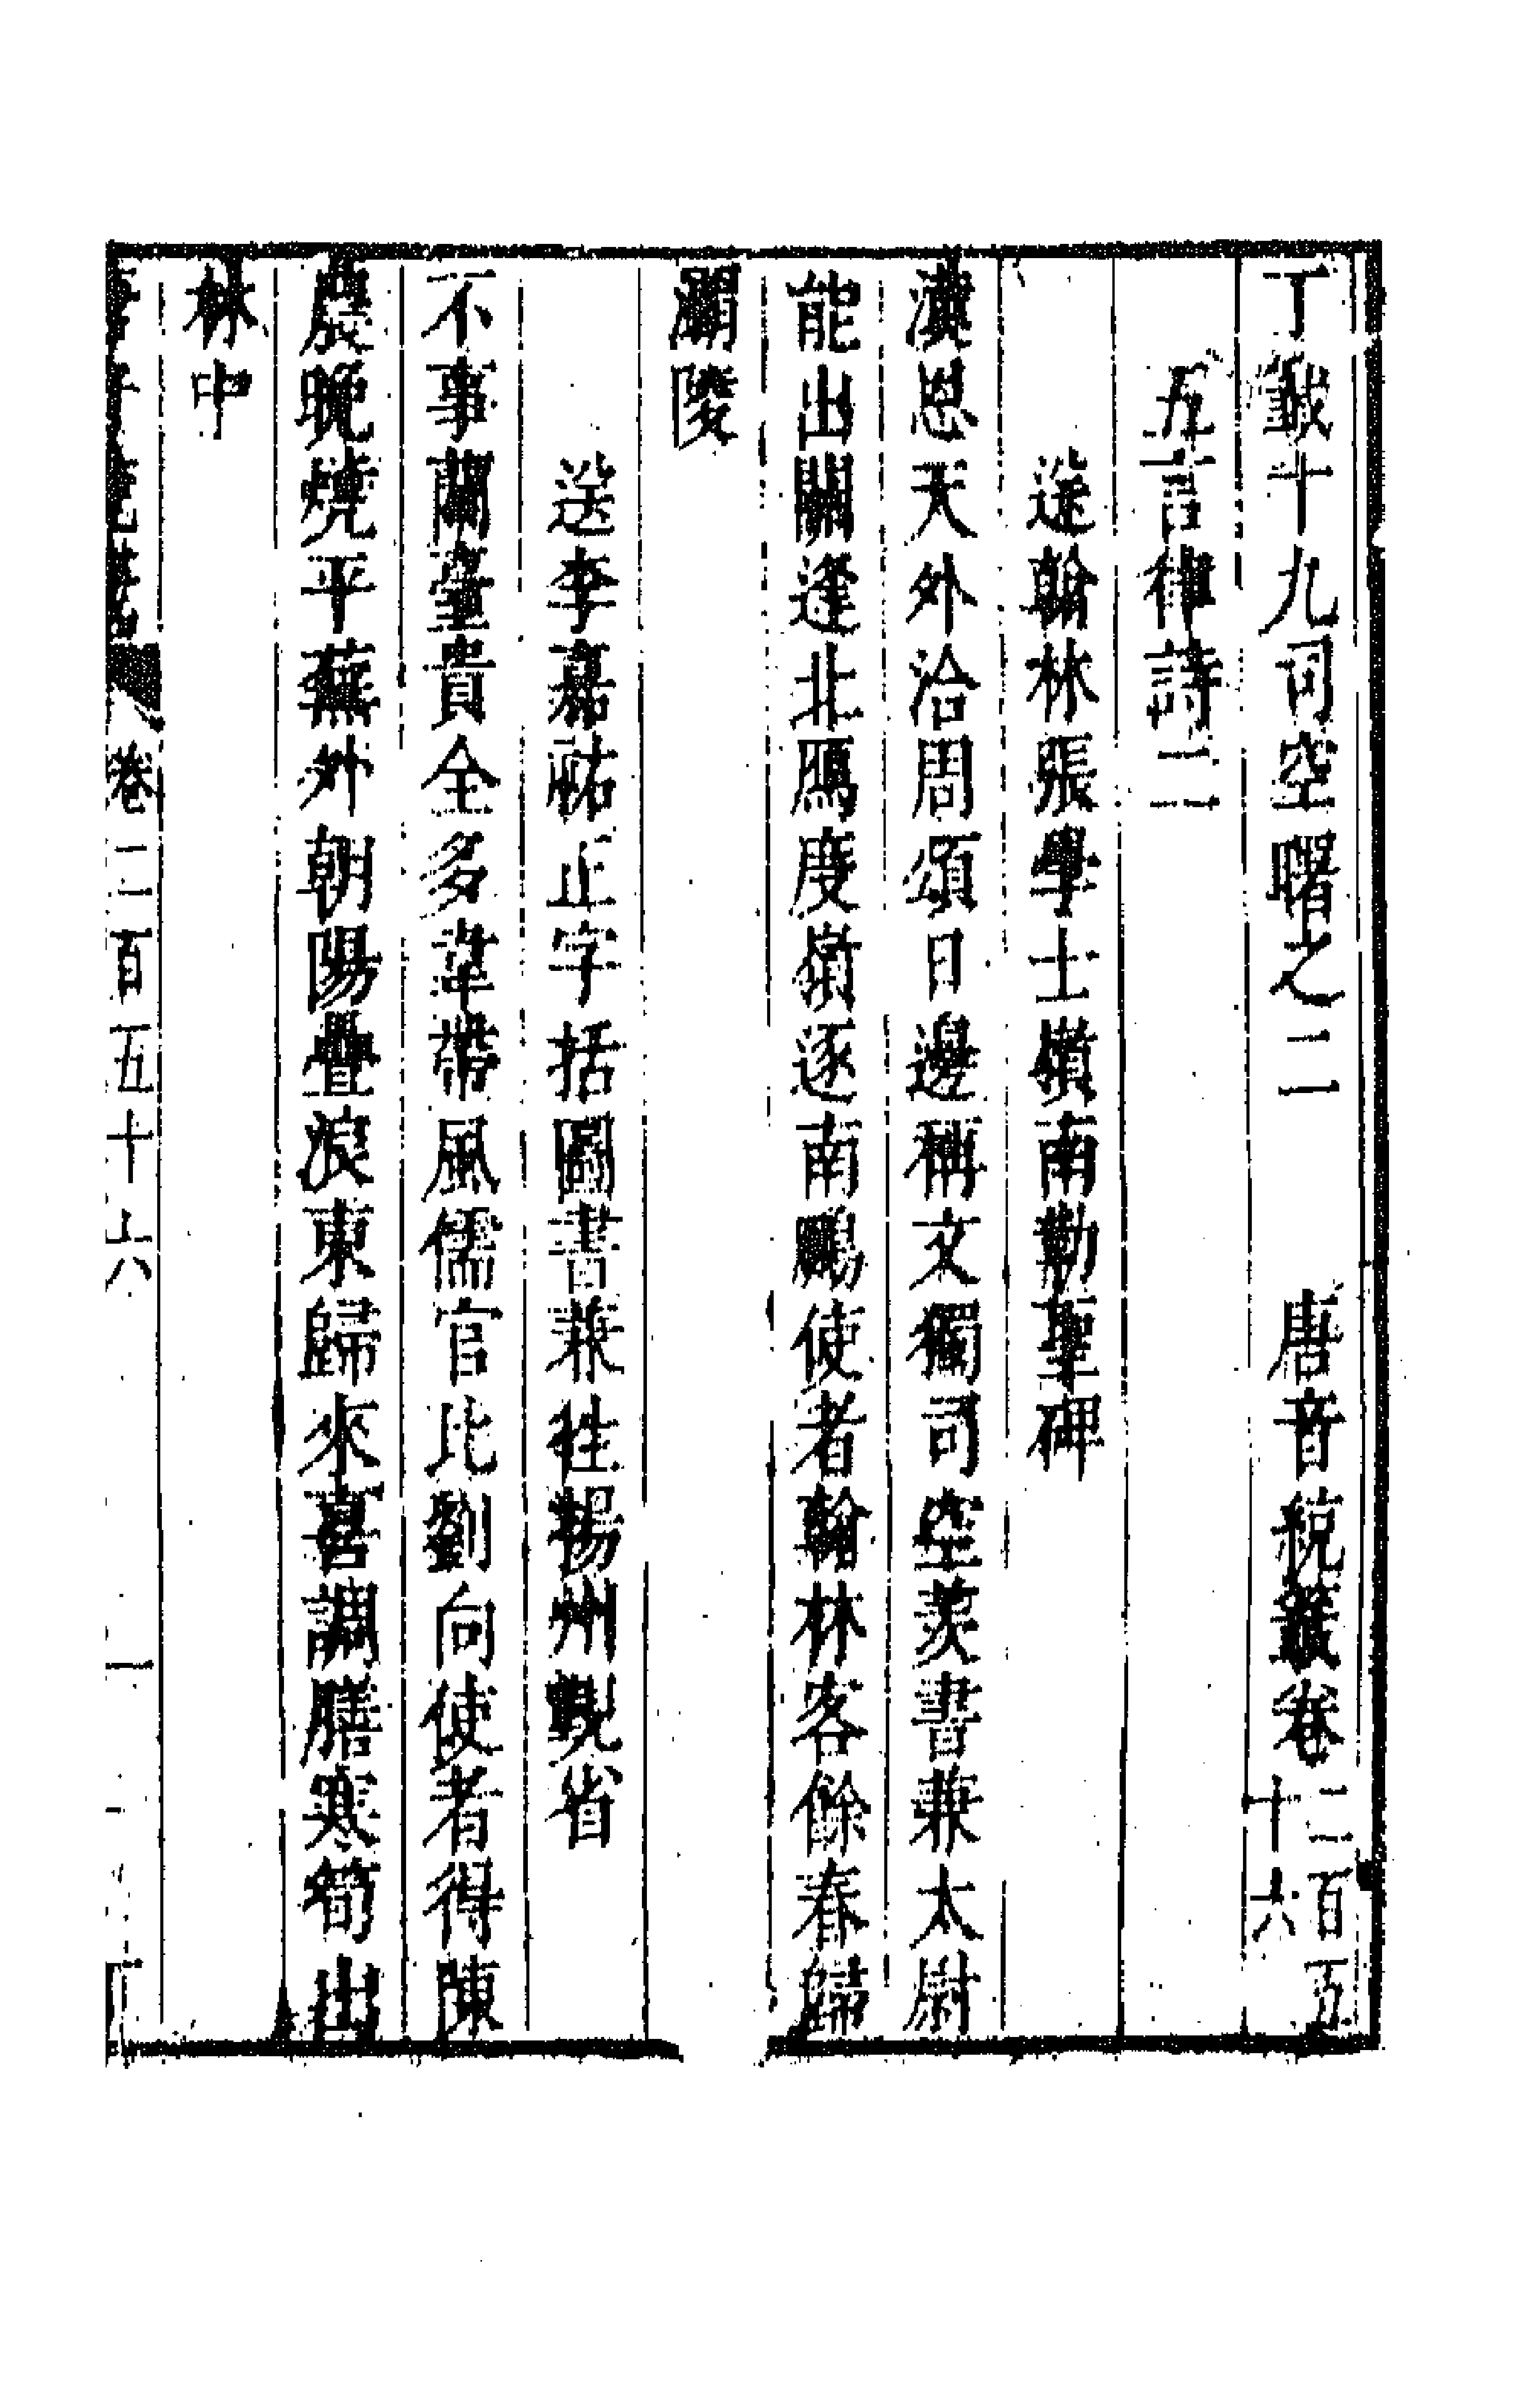 丁籖十九司空曙之二　唐音統籖卷二百五十六
五言律詩二
送翰林張學士嶺南勒聖碑
漢恩天外洽周頌日邊稱文獨司空羨書兼太尉
能出關逢北鴈度嶺逐南鵬使者翰林客餘春歸
灞陵
送李嘉祐正字括圖書兼徃揚州覲省
不事蘭臺貴全多韋帶風儒官比劉向使者得陳
農晚燒平蕪外朝陽疊浪東歸來喜調膳寒筍出
林中
卷二百五十六　一